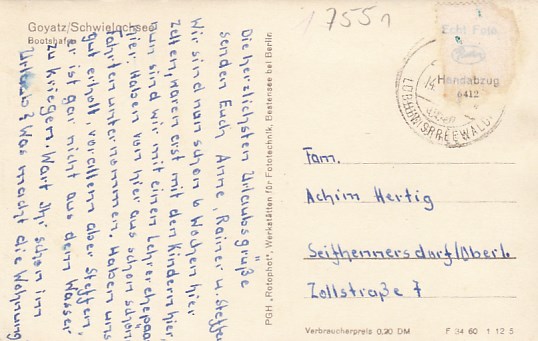 Goyatz/Schwielochsee
Bootshafen
17551
Echt Foto
Handabzug
6412
LÜBBEN/SPREEWALD
Die herzlichsten Urlaubsgrüße
senden Euch Anne, Rainer u. Steffen
Wir sind nun schon 6 Wochen hier
Zelten, waren erst mit den Kindern hier,
nun sind wir mit einem Lehrerehepaar
hier. Haben von hier aus schon schöne
Fahrten unternommen. Haben uns
gut erholt vor allem aber Steffen,
er ist gar nicht aus dem Wasser
zu kriegen. Wart Ihr schon im
Urlaub? Was macht die Wohnung
PGH „Rotophot", Werkstätten für Fototechnik, Bestensee bei Berlin
Fam.
Achim Hertig
Seifhennersdorf/Oberl.
Zollstraße 7
Verbraucherpreis 0,20 DM
F 34 60 1 12 5